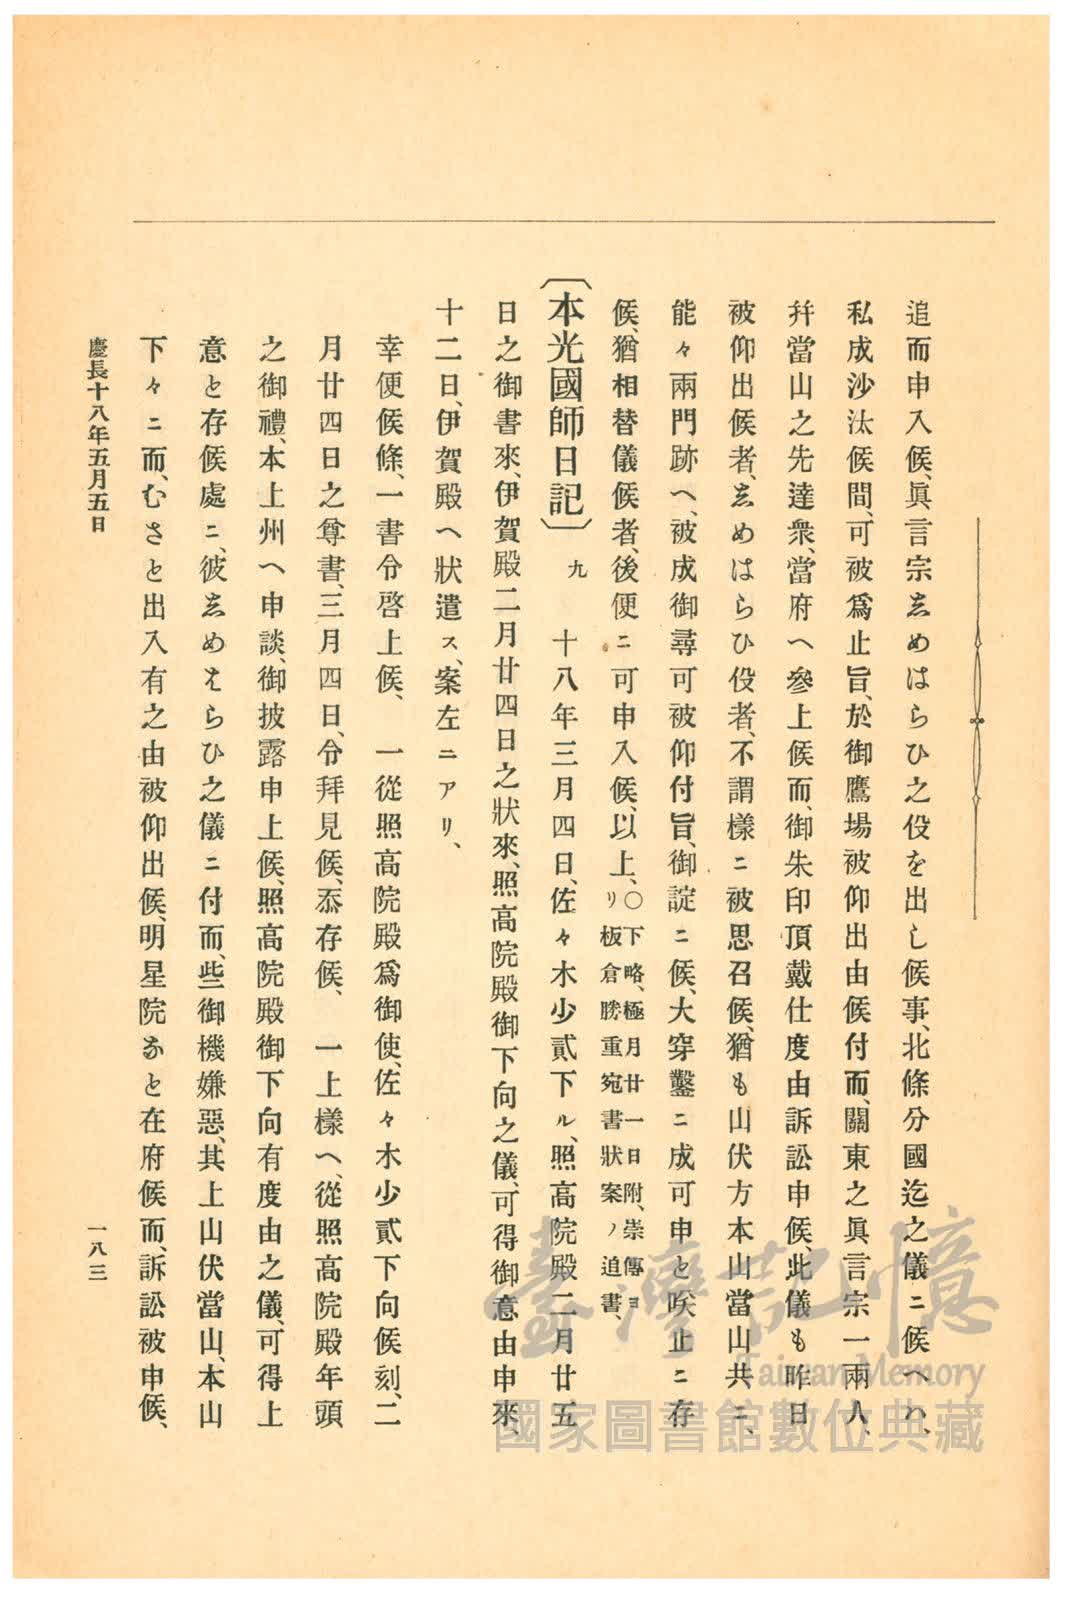 追而申入候、眞言宗志めはらひ之役を出し候事、北條分國迄之儀ニ候へハ、
私成沙汰候間、可被爲止旨、於御鷹場被仰出由候付而、關東之眞言宗一兩人、
幷當山之先達衆、當府へ參上候而、御朱印頂戴仕度由訴訟申候、此儀も昨日
被仰出候者、志めはらひ役者、不謂樣ニ被思召候、猶も山伏方本山當山共ニ、
能々兩門跡へ、被成御尋可被仰付旨、御諚ニ候、大穿鑿ニ成可申と咲止ニ存
候、猶相替儀候者、後便ニ可申入候、以上、○下略、極月廿一日附、崇傳ヨ
リ板倉勝重宛書狀案ノ追書、
〔本光國師日記〕九 十八年三月四日、佐々木少貳下ル、照高院殿二月廿五
日之御書來、伊賀殿二月廿四日之狀來、照高院殿御下向之儀、可得御意由申來、
十二日、伊賀殿へ狀遣ス、案左ニアリ、
幸便候條、一書令啓上候、 一從照高院殿爲御使、佐々木少貳下向候刻、二
月廿四日之尊書、三月四日、令拜見候、忝存候、 一上樣へ、從照高院殿年頭
之御禮、本上州へ申談、御披露申上候、照高院殿御下向有度由之儀、可得上
意と存候處ニ、彼志めはらひ之儀ニ付而、些御機嫌惡、其上山伏當山、本山
下々ニ而、むさと出入有之由被仰出候、明星院なと在府候而、訴訟被申候、
慶長十八年五月五日
一八三
臺灣記憶
Taiwan Memory
國家圖書館數位典藏